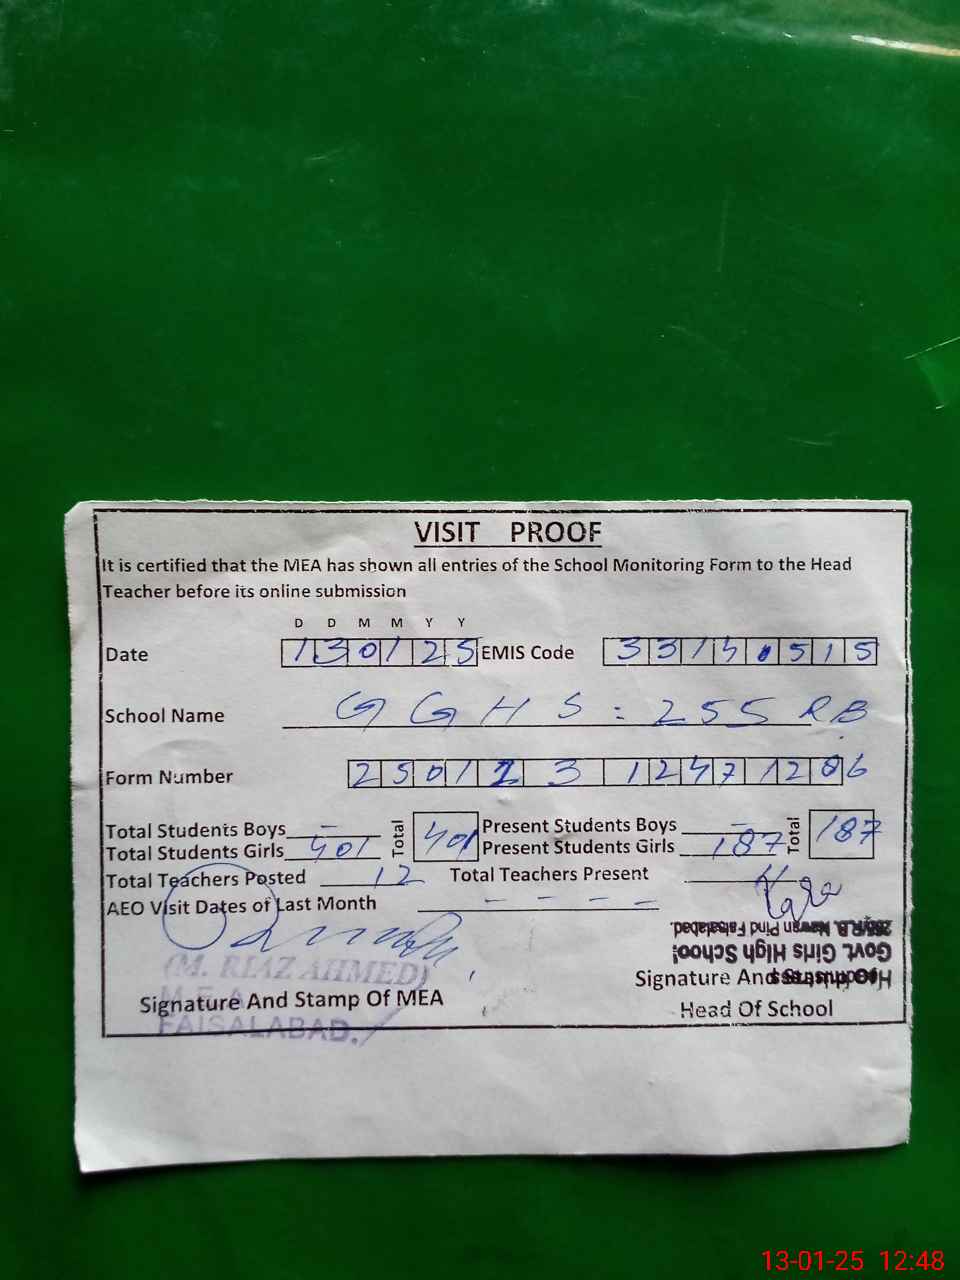 VISIT PROOF
It is certified that the MEA has shown all entries of the School Monitoring Form to the Head
Teacher before its online submission
D D M M Y Y
Date 130125 EMIS Code 33130515
School Name GGHS: 255 RB
Form Number
Total Students Boys - Total 401 Present Students Boys - Total 187
Total Students Girls 401 Present Students Girls 187
Total Teachers Posted 12 Total Teachers Present
AEO Visit Dates of Last Month - - - -
255/R.B. Newan Pind Faisalabad.
Govt. Girls High School
(M. RIAZ AHMED)
M.E.A
FAISALABAD.
Signature And Stamp Of MEA
Signature And
Head Of School
13-01-25 12:48